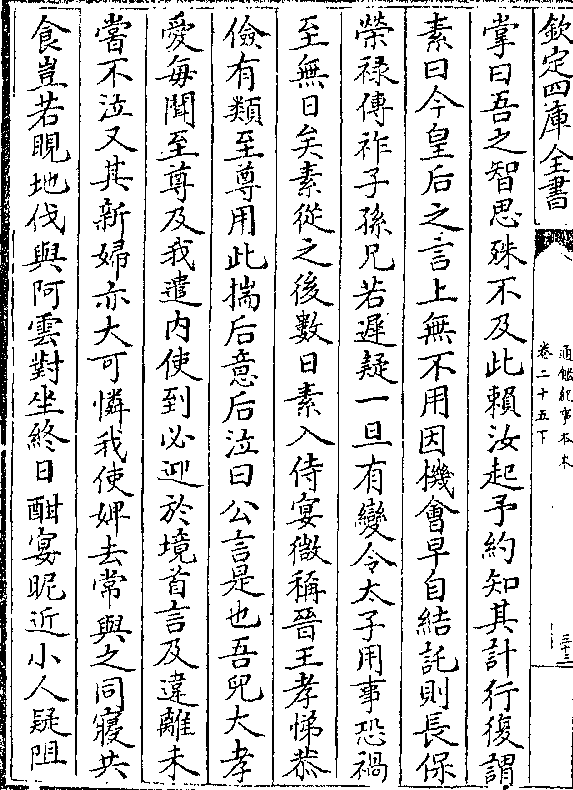 欽定四庫全書
通鑑紀事本末
卷二十五下
三十三
掌曰吾之智思殊不及此賴汝起予約知其計行復謂
素曰今皇后之言上無不用因機會早自結託則長保
榮禄傳祚子孫兄若遲疑一旦有變令太子用事恐禍
至無日矣素從之後數日素入侍宴微稱晉王孝悌恭
儉有類至尊用此揣后意后泣曰公言是也吾兒大孝
愛每聞至尊及我遣内使到必迎於境首言及違離未
嘗不泣又其新婦亦大可憐我使婢去常與之同寢共
食豈若睍地伐與阿雲對坐終日酣宴昵近小人疑阻